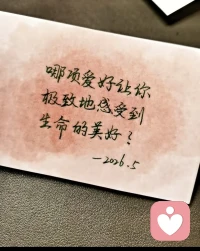 哪项爱好让你
极致地感受到
生命的美好？
—2026.5